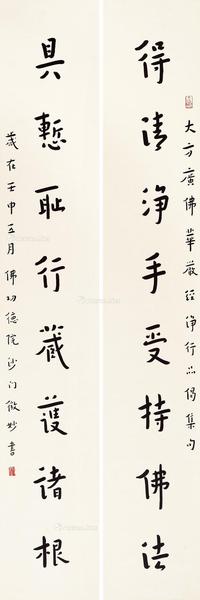 大方廣佛華嚴經淨行品偈集句
得清淨手受持佛法
具慙恥行藏護諸根
歲在壬申三月佛功德院沙門僧妙書